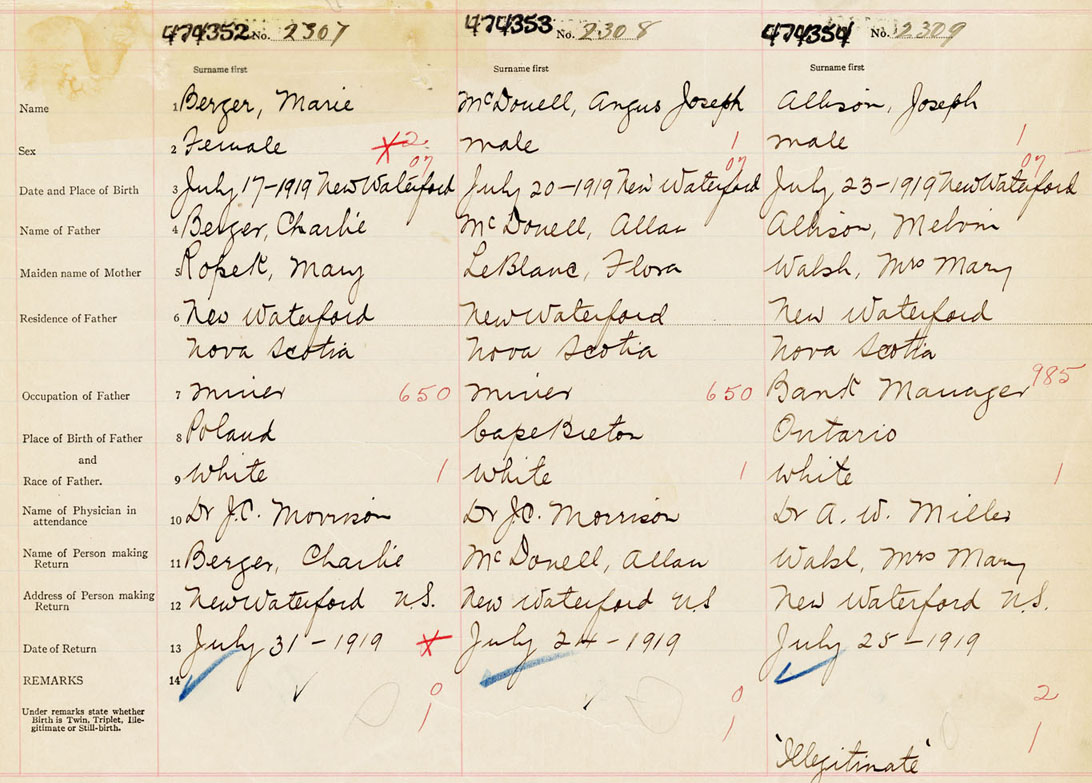 474352 No. 2307 474353 No. 2308 474354 No. 2309
Surname first Surname first Surname first
Name 1 Berger, Marie McDonell, Angus Joseph Allison, Joseph
Sex 2 Female 2 male 1 male 1
07 07 07
Date and Place of Birth 3 July 17-1919 New Waterford July 20-1919 New Waterford July 23-1919 New Waterford
Name of Father 4 Berger, Charlie McDonell, Allan Allison, Melvin
Maiden name of Mother 5 Ropek, Mary LeBlanc, Flora Walsh, Mrs Mary
Residence of Father 6 New Waterford New Waterford New Waterford
Nova Scotia Nova Scotia Nova Scotia
Occupation of Father 7 miner 650 miner 650 Bank Manager 985
Place of Birth of Father 8 Poland Cape Breton Ontario
and
Race of Father. 9 White 1 White 1 White 1
Name of Physician in
attendance 10 Dr J.C. Morrison Dr J.C. Morrison Dr A. W. Miller
Name of Person making
Return 11 Berger, Charlie McDonell, Allan Walsh, Mrs Mary
Address of Person making
Return 12 New Waterford N.S. New Waterford N S New Waterford N.S.
Date of Return 13 July 31-1919 July 24-1919 July 25-1919
REMARKS 14
0 0 2
Under remarks state whether
Birth is Twin, Triplet, Ille-
gitimate or Still-birth. 1 1 1
'Illegitimate'